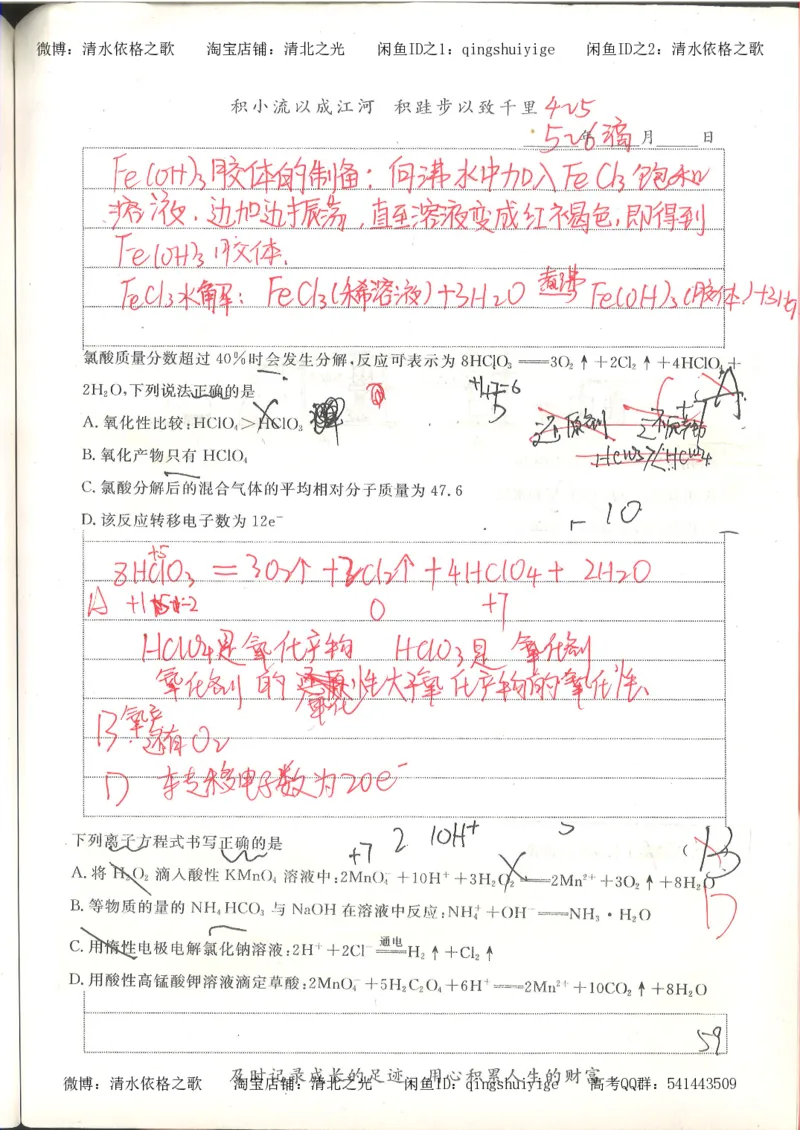 微博：清水依格之歌 淘宝店铺：清北之光 闲鱼ID之1：qingshuiyige 闲鱼ID之2：清水依格之歌
积小流以成江河 积跬步以致千里 425
年 月 日
5~6滴
Fe(OH)₃胶体的制备：向沸水中加入FeCl₃饱和
溶液，边加边振荡，直至溶液变成红褐色，即得到
Fe(OH)₃胶体.
FeCl₃水解：FeCl₃(稀溶液)+3H₂O 煮沸 Fe(OH)₃(胶体)+3H
氯酸质量分数超过 40%时会发生分解,反应可表示为 8HClO₃ ══3O₂↑+2Cl₂↑+4HClO₄+
2H₂O,下列说法正确的是
A. 氧化性比较:HClO₄>HClO₃
B. 氧化产物只有 HClO₄
C. 氯酸分解后的混合气体的平均相对分子质量为 47.6
D. 该反应转移电子数为 12e⁻
A
还原剂
HClO₃ HClO₄
10
+5
8HClO₃ = 3O₂↑ + 2Cl₂↑ + 4HClO₄ + 2H₂O
A +1 +5 -2 0 +7
HClO₄是氧化产物 HClO₃是 氧化剂
氧化剂的氧化性大于氧化产物的氧化性、
B 氧产
还有O₂
D 转移电子数为20e⁻
下列离子方程式书写正确的是
+7 2 10H⁺ B
A. 将 H₂O₂ 滴入酸性 KMnO₄ 溶液中:2MnO₄⁻+10H⁺+3H₂O₂══2Mn²⁺+3O₂↑+8H₂O
B. 等物质的量的 NH₄HCO₃ 与 NaOH 在溶液中反应:NH₄⁺+OH⁻══NH₃·H₂O
D
C. 用惰性电极电解氯化钠溶液:2H⁺+2Cl⁻ 通电══ H₂↑+Cl₂↑
D. 用酸性高锰酸钾溶液滴定草酸:2MnO₄⁻+5H₂C₂O₄+6H⁺══2Mn²⁺+10CO₂↑+8H₂O
59
及时记录成长的足迹 用心积累人生的财富
微博：清水依格之歌 淘宝店铺：清北之光 闲鱼ID：qingshuiyige 高考QQ群：541443509